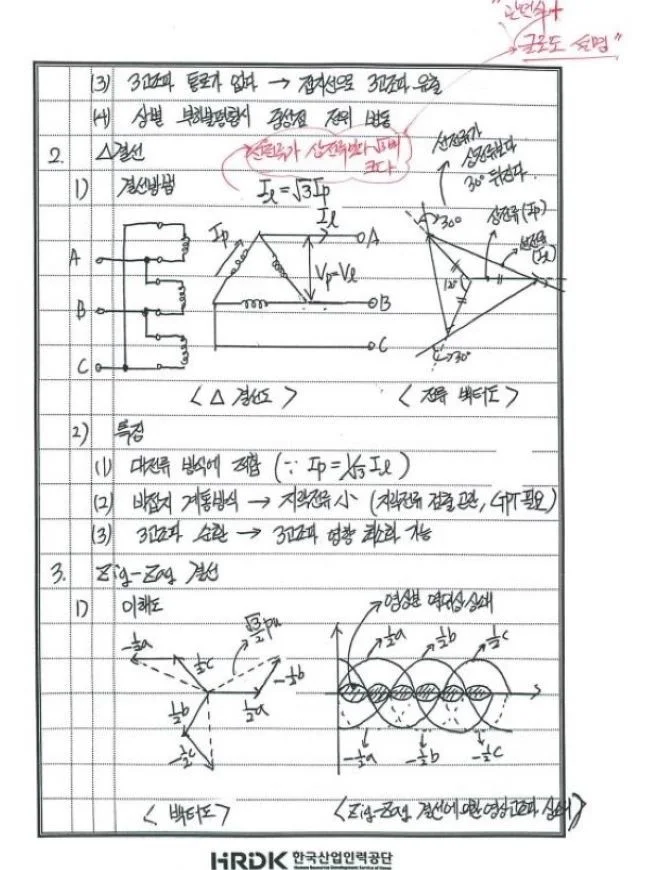 "관련식+
글로도 설명"
(3) 3고조파 통로가 없다 → 접지선으로 3고조파 유출
(4) 상별 부하불평형시 중성점 전위 변동
2. △결선
선전류가 상전류보다 √3배
크다.
1) 결선방법
Iℓ = √3 Ip
선전류가
상전류보다
30° 뒤진다.
A
B
C
Ip
Iℓ
Vp=Vℓ
A
B
C
30°
상전류 (Ip)
선전류 (Iℓ)
120°
30°
< △ 결선도 >
< 전류 벡터도 >
2) 특징
(1) 대전류 방식에 적합 (∵ Ip = 1/√3 Iℓ)
(2) 비접지 계통방식 → 지락전류 小 (지락전류 검출곤란, GPT 필요)
(3) 3고조파 순환 → 3고조파 영향 최소화 가능
3. Zig-Zag 결선
1) 이해도
영상분 역위상 상쇄
-½a
½c
√3/2 pu
-½b
½a
½b
-½c
½a
½b
½c
-½a
-½b
-½c
< 벡터도 >
< Zig-Zag 결선에 의한 영상고조파 상쇄 >
HRDK 한국산업인력공단
Human Resources Development Service of Korea